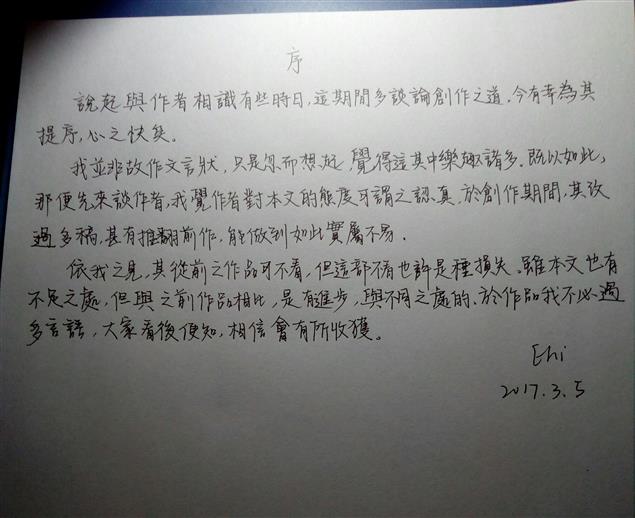 序
說起與作者相識有些時日,這期間多談論創作之道.今有幸為其
提序,心之快矣。
我並非故作文言狀,只是忽而想起,覺得這其中樂趣諸多.既以如此,
那便先來談作者,我覺作者對本文的態度可謂之認真.於創作期間,其改
過多稿,甚有推翻前作,能做到如此實屬不易.
依我之見,其從前之作品可不看,但這部不看也許是種損失.雖本文也有
不足之處,但與之前作品相比,是有進步,與不同之處的.於作品我不必過
多言語,大家看後便知,相信會有所收獲。
Ehi
2017.3.5